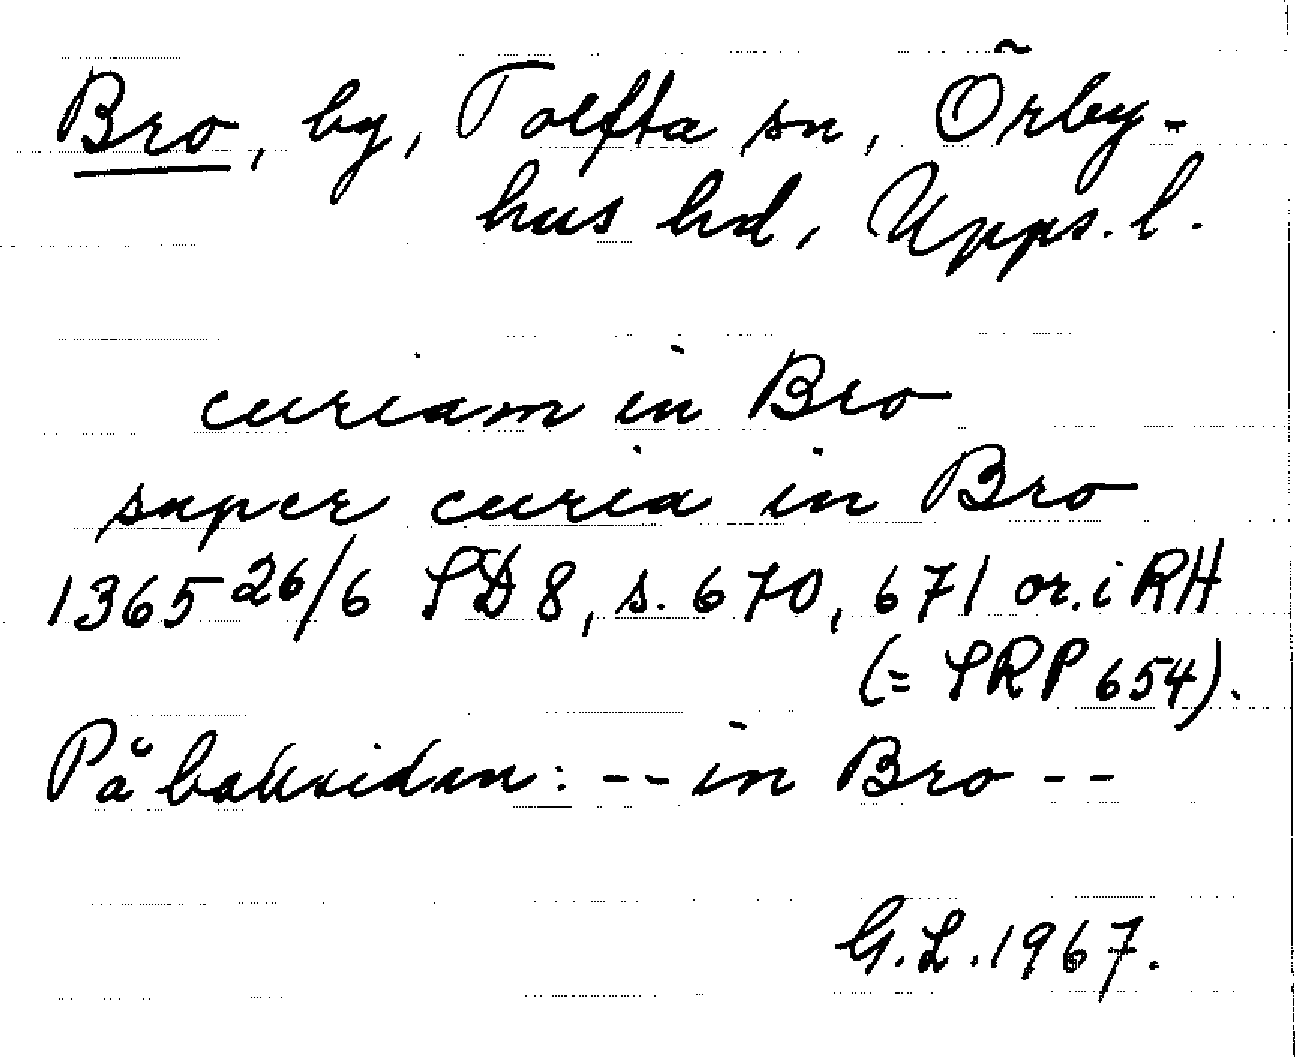 Bro, by, Tolfta sn, Örby-
hus hd, Upps. l.
curiam in Bro
super curia in Bro
1365 26/6 SD 8, s. 670, 671 or. i RH
(= SRP 654).
På baksidan: -- in Bro --
G. L. 1967.